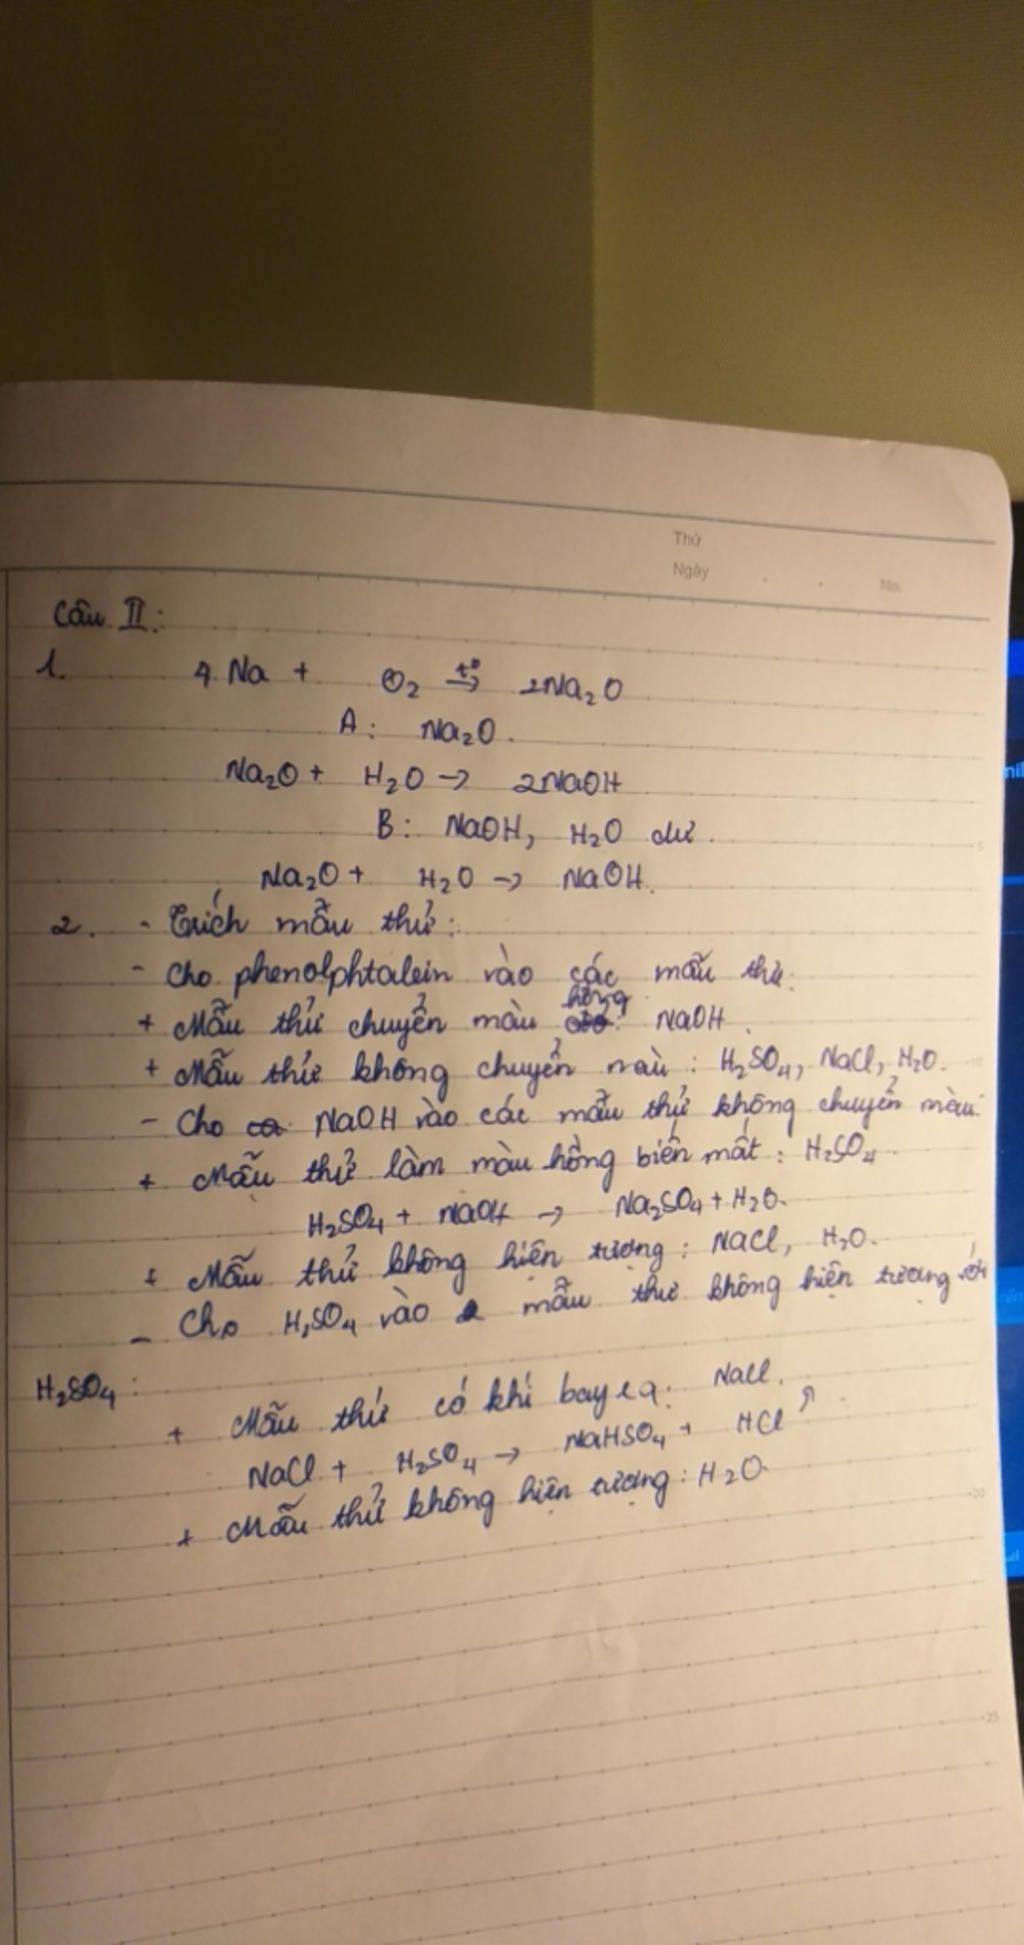 Thứ
Ngày No.
Câu II:
1. 4 Na + O₂ →t° 2Na₂O
A: Na₂O.
Na₂O + H₂O → 2NaOH
B: NaOH, H₂O dư.
Na₂O + H₂O → NaOH.
2. - Trích mẫu thử:
- Cho phenolphtalein vào các mẫu thử.
+ Mẫu thử chuyển màu hồng: NaOH.
+ Mẫu thử không chuyển màu: H₂SO₄, NaCl, H₂O.
- Cho NaOH vào các mẫu thử không chuyển màu:
+ Mẫu thử làm màu hồng biến mất: H₂SO₄.
H₂SO₄ + NaOH → Na₂SO₄ + H₂O.
+ Mẫu thử không hiện tượng: NaCl, H₂O.
- Cho H₂SO₄ vào 2 mẫu thử không hiện tượng với
H₂SO₄:
+ Mẫu thử có khí bay ra: NaCl.
NaCl + H₂SO₄ → NaHSO₄ + HCl ↑.
+ Mẫu thử không hiện tượng: H₂O.
5
10
20
25